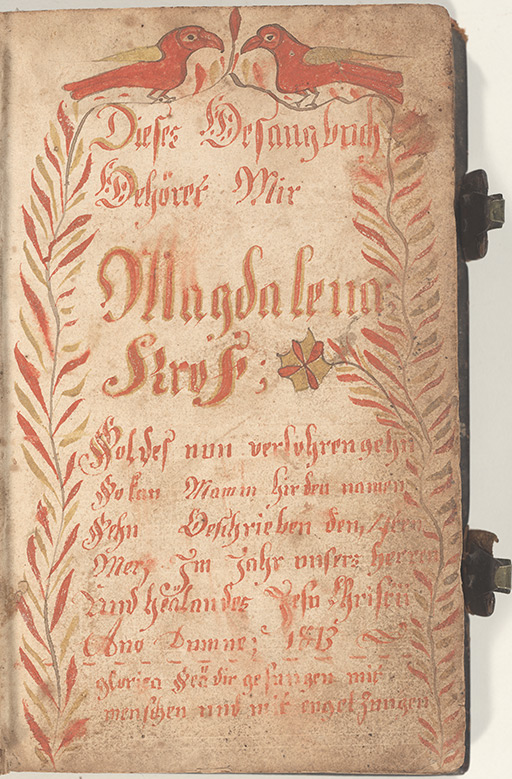 Dieses Gesangbuch
Gehöret Mir
Magdalena
Kros;
Soldes nun verlohren gehn
So kan Mann hir den namen
Sehn Geschrieben den
Merz Im Jahr unsers Herren
Und Heilandes Jesu Christii
Ano Dumne; 1813
Glorita Seÿ dir gesungen mit
menschen und mit engel Zungen